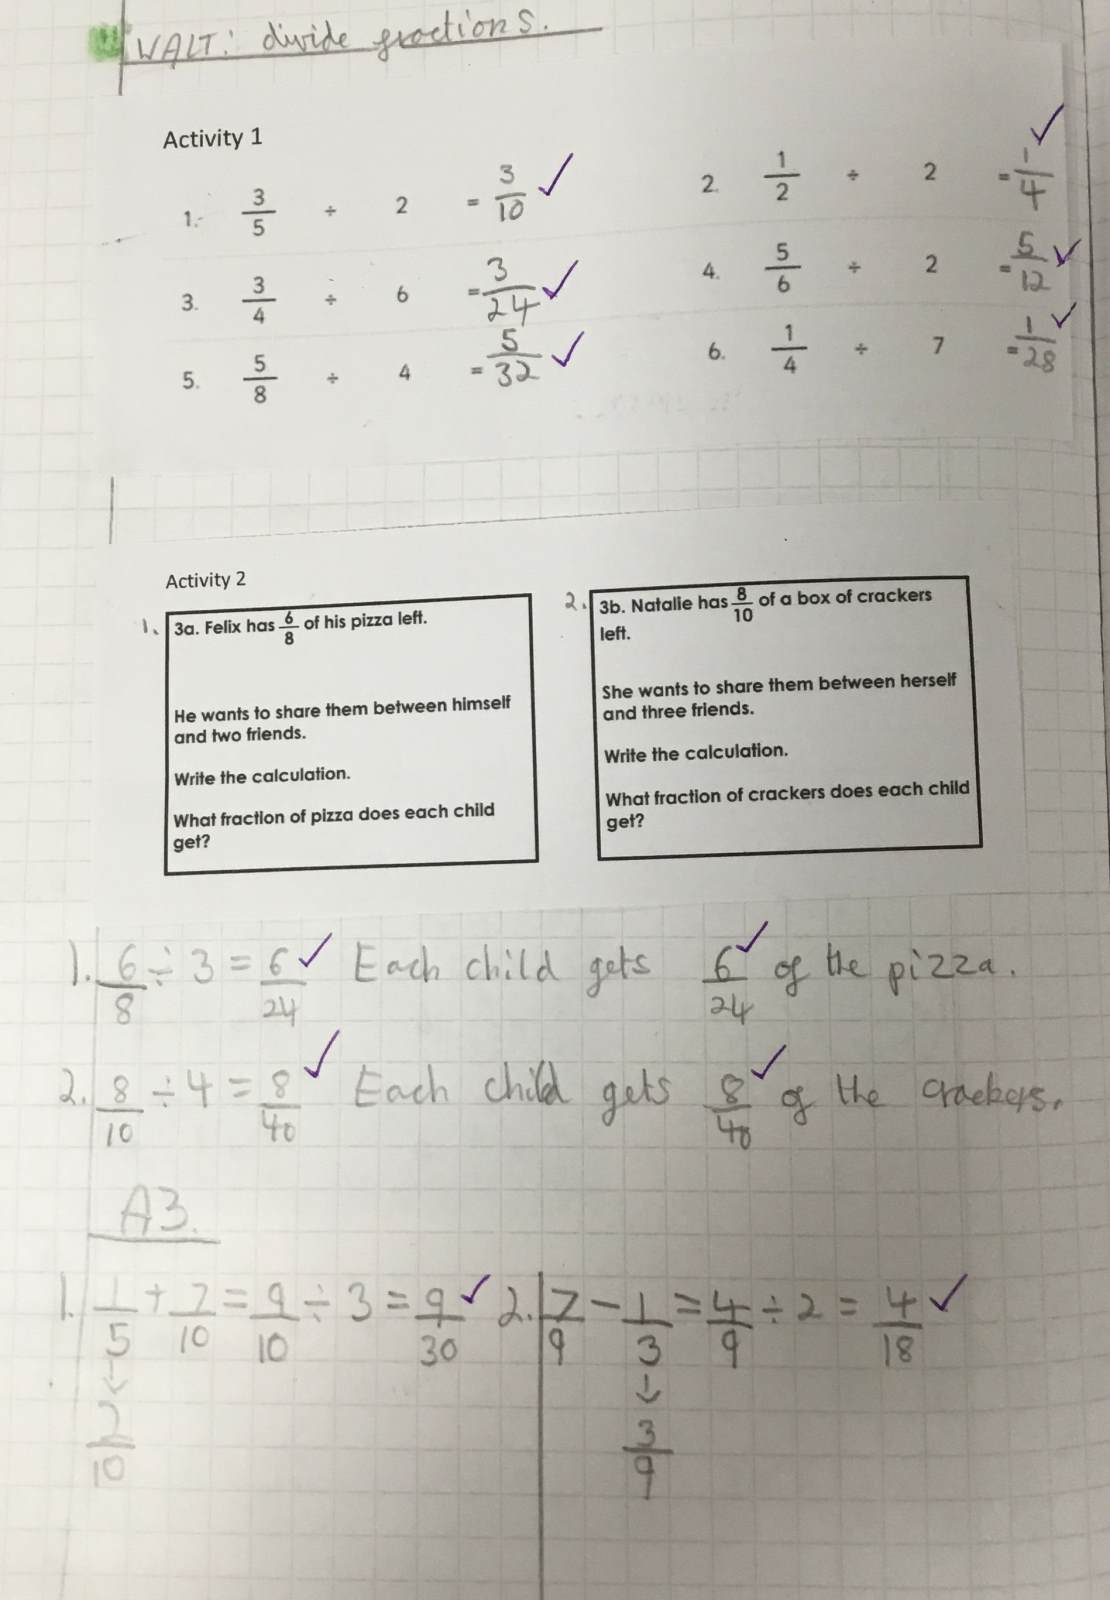 WALT: divide fractions.
Activity 1
1. 3/5 ÷ 2 = 3/10 ✓ 2. 1/2 ÷ 2 = 1/4 ✓
3. 3/4 ÷ 6 = 3/24 ✓ 4. 5/6 ÷ 2 = 5/12 ✓
5. 5/8 ÷ 4 = 5/32 ✓ 6. 1/4 ÷ 7 = 1/28 ✓
Activity 2
1. 3a. Felix has 6/8 of his pizza left.
He wants to share them between himself
and two friends.
Write the calculation.
What fraction of pizza does each child
get?
2. 3b. Natalie has 8/10 of a box of crackers
left.
She wants to share them between herself
and three friends.
Write the calculation.
What fraction of crackers does each child
get?
1. 6/8 ÷ 3 = 6/24 ✓ Each child gets 6/24 ✓ of the pizza.
2. 8/10 ÷ 4 = 8/40 ✓ Each child gets 8/40 ✓ of the crackers.
A3.
1. 1/5 + 7/10 = 9/10 ÷ 3 = 9/30 ✓
↓
2/10
2. 7/9 − 1/3 = 4/9 ÷ 2 = 4/18 ✓
↓
3/9